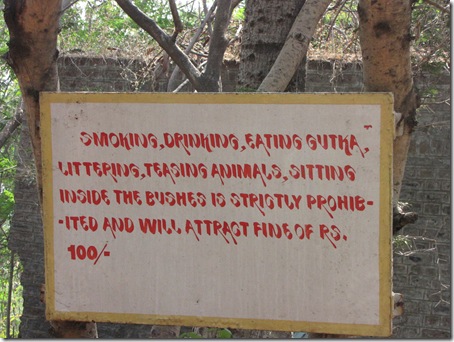 SMOKING, DRINKING, EATING GUTKA,
LITTERING, TEASING ANIMALS, SITTING
INSIDE THE BUSHES IS STRICTLY PROHIB-
-ITED AND WILL ATTRACT FINE OF RS.
100/-